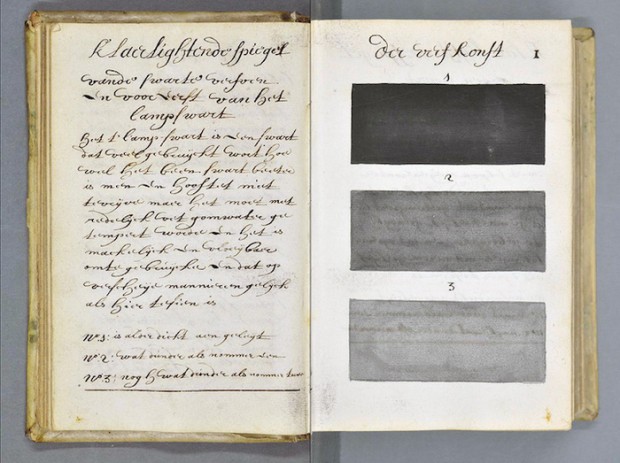 klaerlightende spiegel
vande swarte verfven
en voor eerst van het
lampswart
Het lampswart is een swart
dat veel gebruyckt wort hoe
wel het been swart beeter
is men en hooft et niet
te vrijve maer het moet met
redelijck vet gomwater ge
tempert worde en het is
mackelijck en vloeybaer
om te gebruycke en dat op
verscheije mannieren gelijck
als hier te sien is
No 1: is alder dicht aen gelegt
No 2: wat dunder als nommer een
No 3: nog h wat dunder als nommer twee
der verfkonst
1
1
2
3